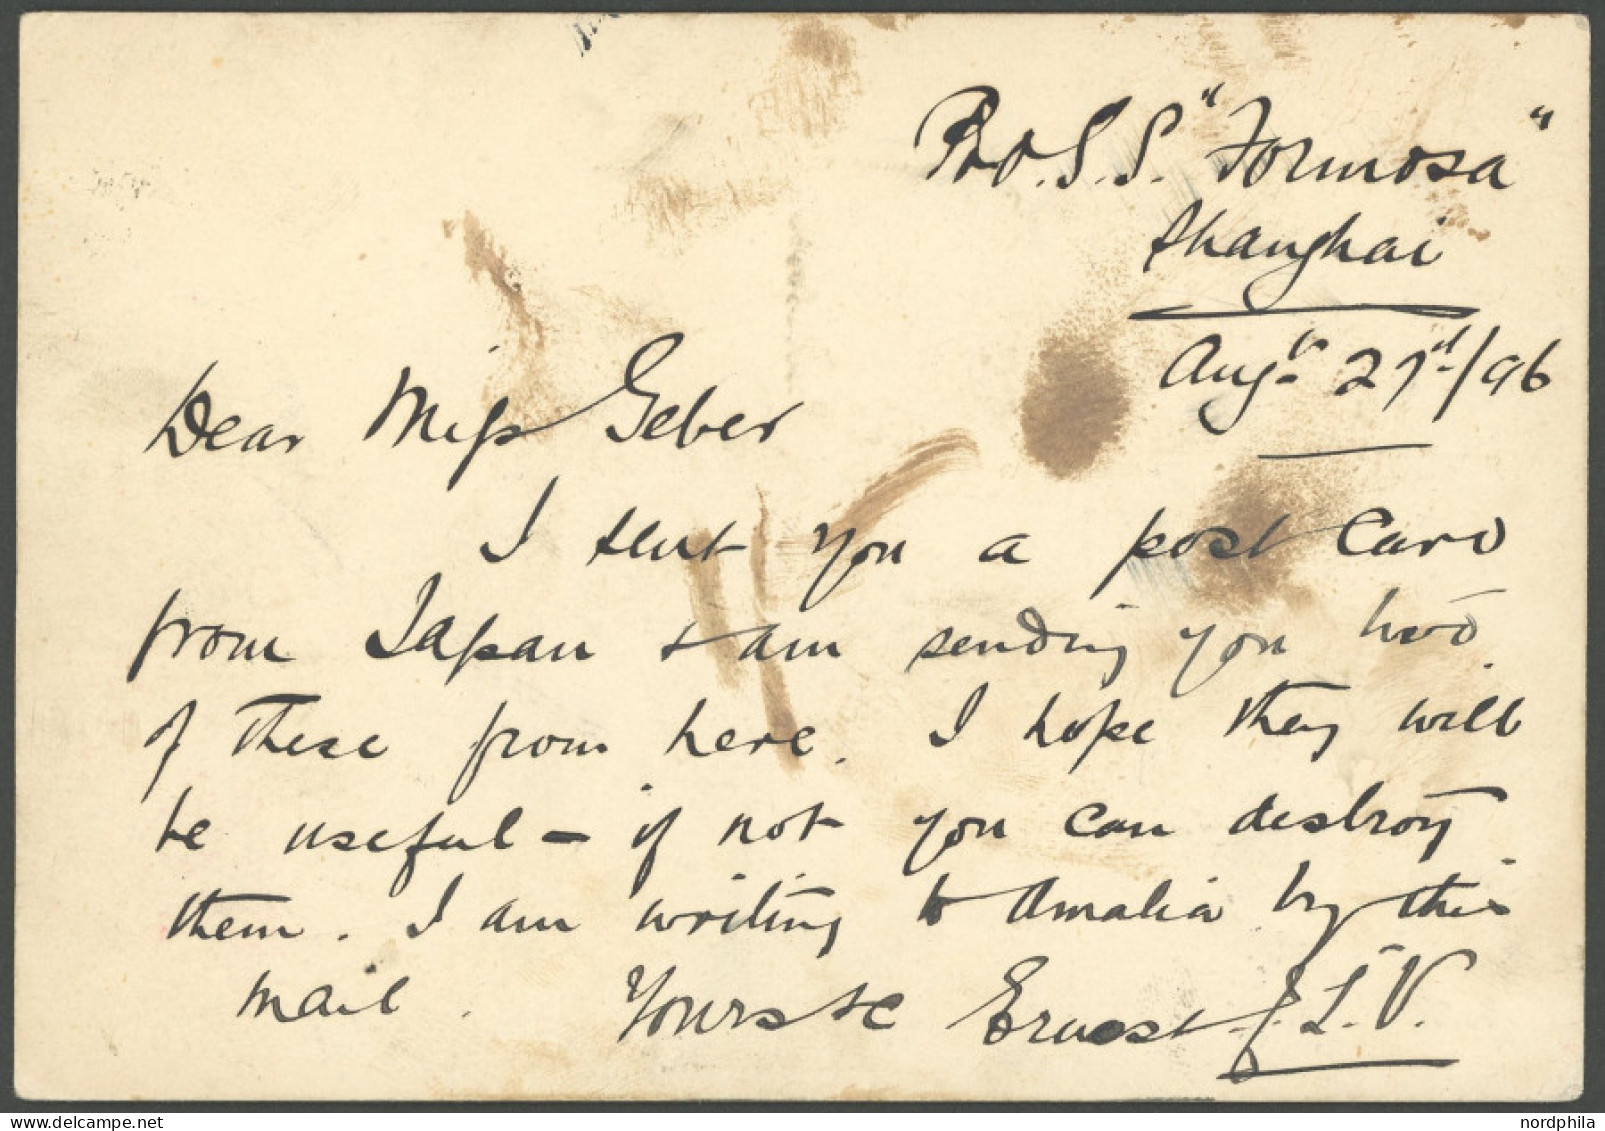 P&O. S.S. "Formosa"
Shanghai
Augt 27th/96
Dear Miss Geber
I sent you a post card
from Japan & am sending you two
of these from here. I hope they will
be useful - if not you can destroy
them. I am writing to Amalia by this
mail. Yours &c Ernest J. L. V.
nordphila
www.delcampe.net